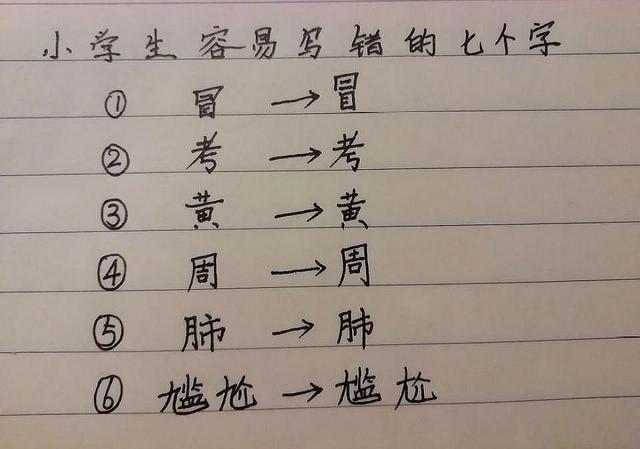 小学生容易写错的七个字
① 冒 → 冒
② 考 → 考
③ 黄 → 黄
④ 周 → 周
⑤ 肺 → 肺
⑥ 尴尬 → 尴尬